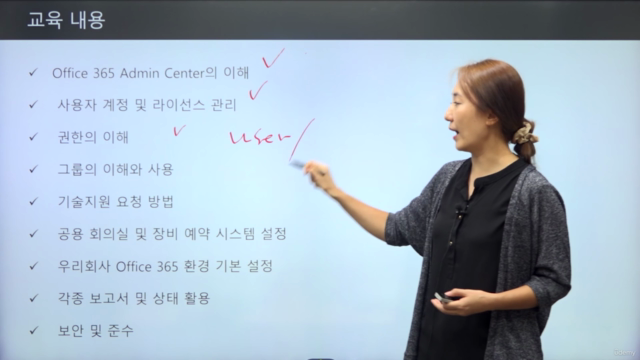 교육 내용
✓ Office 365 Admin Center의 이해
✓ 사용자 계정 및 라이선스 관리
✓ 권한의 이해 user/
✓ 그룹의 이해와 사용
✓ 기술지원 요청 방법
✓ 공용 회의실 및 장비 예약 시스템 설정
✓ 우리회사 Office 365 환경 기본 설정
✓ 각종 보고서 및 상태 활용
✓ 보안 및 준수